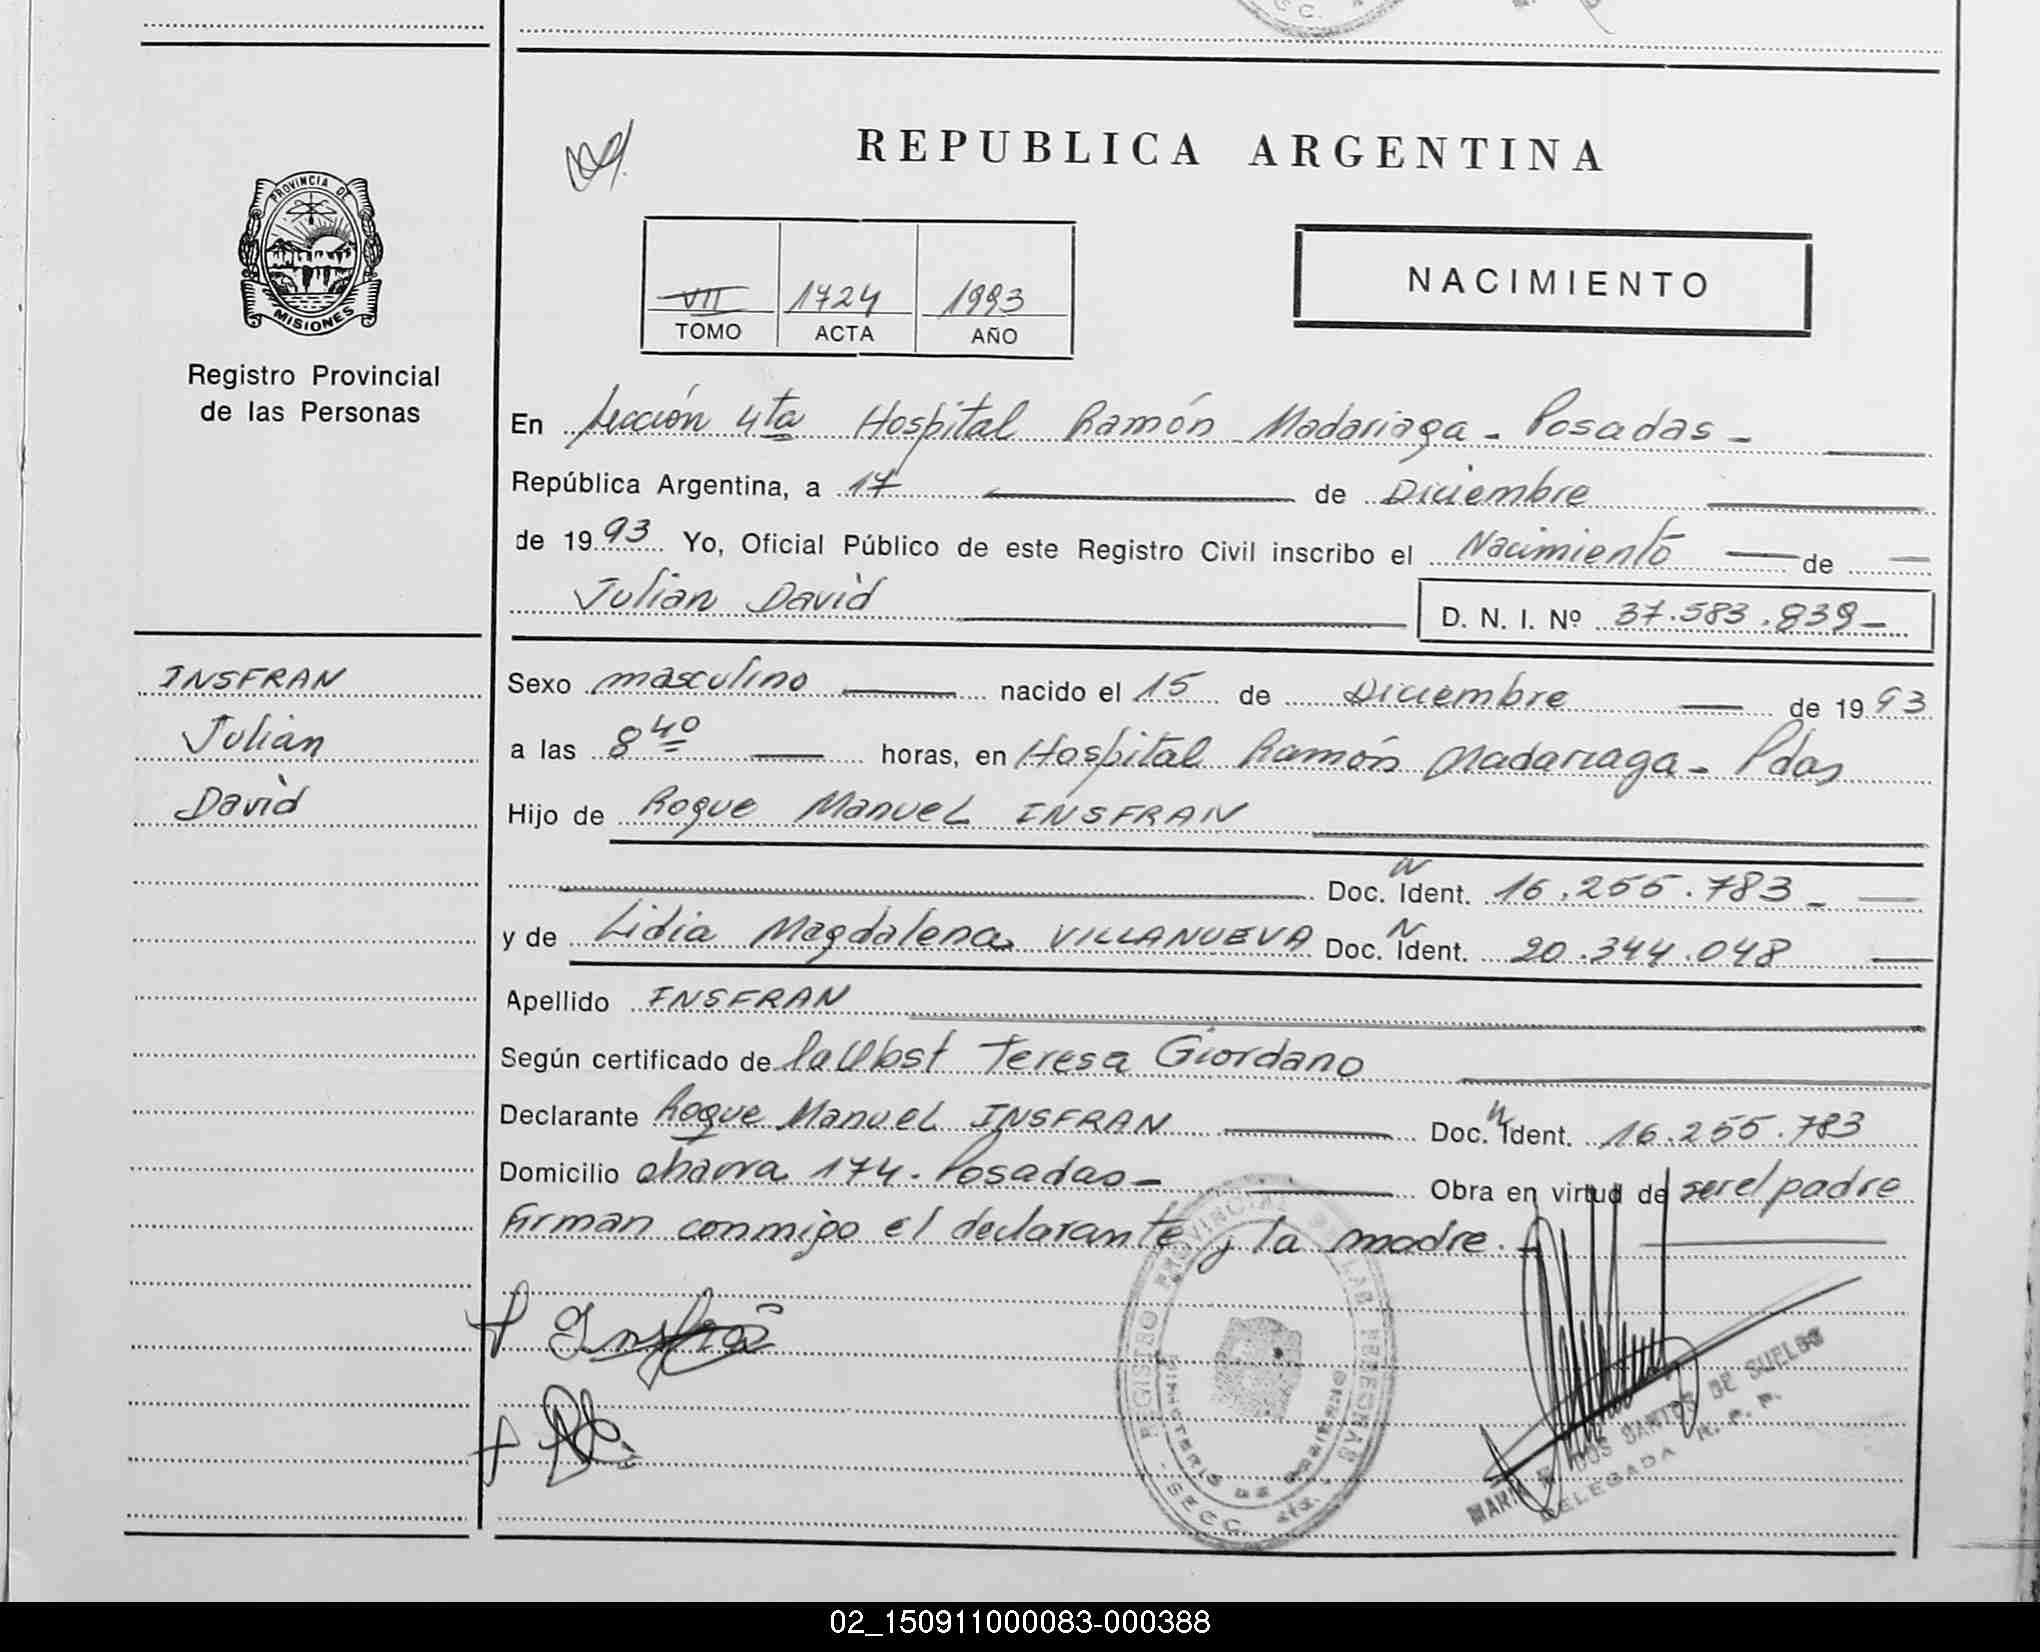 REPUBLICA ARGENTINA
PROVINCIA DE
MISIONES
Registro Provincial
de las Personas
VII 1724 1993
TOMO ACTA AÑO
NACIMIENTO
En Sección 4ta Hospital Ramón Madariaga - Posadas -
República Argentina, a 17 de Diciembre
de 1993 Yo, Oficial Público de este Registro Civil inscribo el Nacimiento de
Julian David
D. N. I. Nº 37.583.839-
INSFRAN
Julian
David
Sexo masculino nacido el 15 de Diciembre de 1993
a las 8 40 horas, en Hospital Ramón Madariaga - Pdas
Hijo de Roque Manuel INSFRAN
Doc. N Ident. 16.255.783 -
y de Lidia Magdalena VILLANUEVA Doc. N Ident. 20.344.048
Apellido INSFRAN
Según certificado de la Obst Teresa Giordano
Declarante Roque Manuel INSFRAN Doc. N Ident. 16.255.783
Domicilio 174. Posadas - Obra en virtud de ser el padre
Firman conmigo el declarante y la madre.
Insfran
REGISTRO PROVINCIAL DE LAS PERSONAS
MINISTERIO DE GOBIERNO
SECC. 4ta.
DOS SANTOS DE SUELDO
DELEGADA R. P. P.
02_150911000083-000388